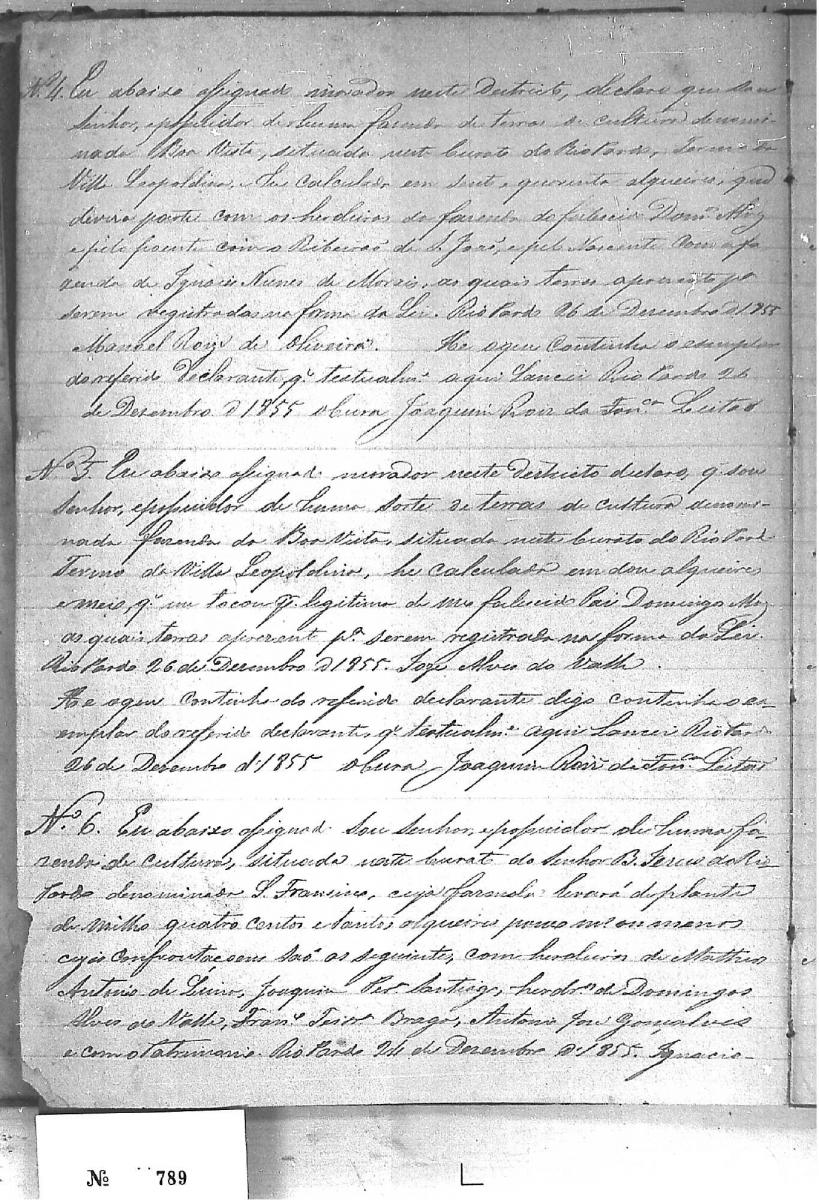 Nº 4. Eu abaixo assignado morador neste Destricto, declaro que sou
Senhor, e possuidor de huma fazenda de terras de cultura denomi-
nada Boa Vista, situada neste Curato do Rio Pardo, Termo da
Villa Leopoldina, he calculada em cento, e quarenta alqueires, que
divisa parte com os herdeiros da fazenda do falecido Dom.os Alvz
e pelo poente com o Ribeirão de S. João, e pelo Nascente com a fa
zenda de Ignacio Nunes de Morais, as quais terras apresento pª
serem registradas na forma da Lei. Rio Pardo 26 de Desembro d'1855
Manoel Roiz de Oliveira. He o que continha o exemplar
do referido declarante, q. textualm.e aqui Lancei Rio Pardo 26
de Desembro d'1855 o Cura Joaquim Roiz da Fon.ca Leitão
Nº 5. Eu abaixo assignado morador neste Destricto declaro, q. sou
Senhor, e possuidor de huma sorte de terras de cultura denomi-
nada fazenda da Boa Vista, situada neste Curato do Rio Pardo
Termo da Villa Leopoldina, he calculada em dous alqueires
e meio, q. me tocou de legitima de meo falecido Pai Domingo
as quais terras apresento pª serem registradas na forma da Lei.
Rio Pardo 26 de Desembro d'1855. Joze Alves do Valle.
He o que continha do referido declarante digo continha o ex-
emplar do referido declarante, q. textualm.e aqui Lancei Rio Pardo
26 de Desembro d'1855 o Cura Joaquim Roiz da Fon.ca Leitão
Nº 6. Eu abaixo assignado sou Senhor, e possuidor de huma fa-
zenda de cultura, situada neste Curato do Senhor B. Jesus do Rio
Pardo denominada S. Francisco, cuja fazenda levará de planta
de milho quatro centos e tantos alqueires pouco mais ou menos
cujas confrontaçoens são as seguintes, com herdeiros de Matheus
Antonio de Lima, Joaquim Per.ª Santiago, herdr.os de Domingos
Alves do Valle, Fran.co Teixr.ª Braga, Antonio Joze Gonçalves
e com o Patrimonio. Rio Pardo 24 de Desembro d'1855. Ignacio
Nº 789